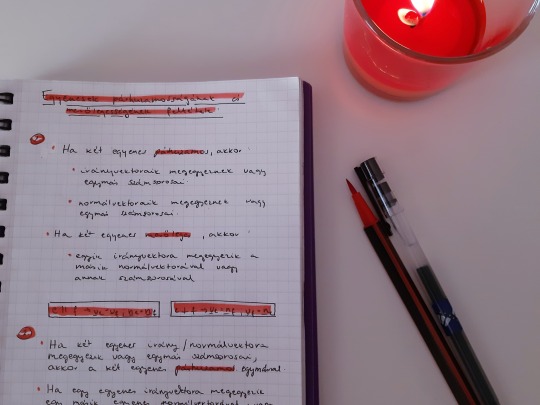 Egyenesek párhuzamosságának és
merőlegességének feltétele:
• Ha két egyenes párhuzamos, akkor:
• irányvektoraik megegyeznek vagy
egymás számszorosai
• normálvektoraik megegyeznek vagy
egymás számszorosai
• Ha két egyenes merőleges, akkor
• egyik irányvektora megegyezik a
másik normálvektorával vagy
annak számszorosával
• Ha két egyenes irány/normálvektora
megegyezik vagy egymás számszorosai,
akkor a két egyenes párhuzamos egymással.
• Ha egy egyenes irányvektora megegyezik
egy másik egyenes normálvektorával vagy